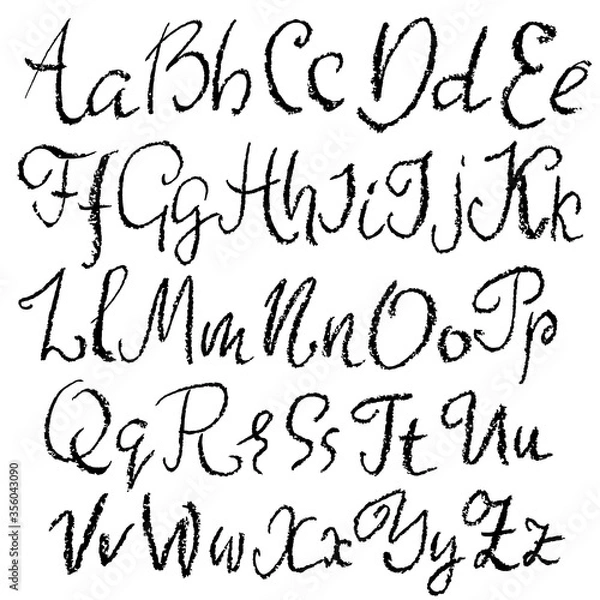 Aa Bb Cc Dd Ee
Ff Gg Hh Ii Jj Kk
Ll Mm Nn Oo Pp
Qq Rr Ss Tt Uu
Vv Ww Xx Yy Zz
Adobe Stock | #356043090